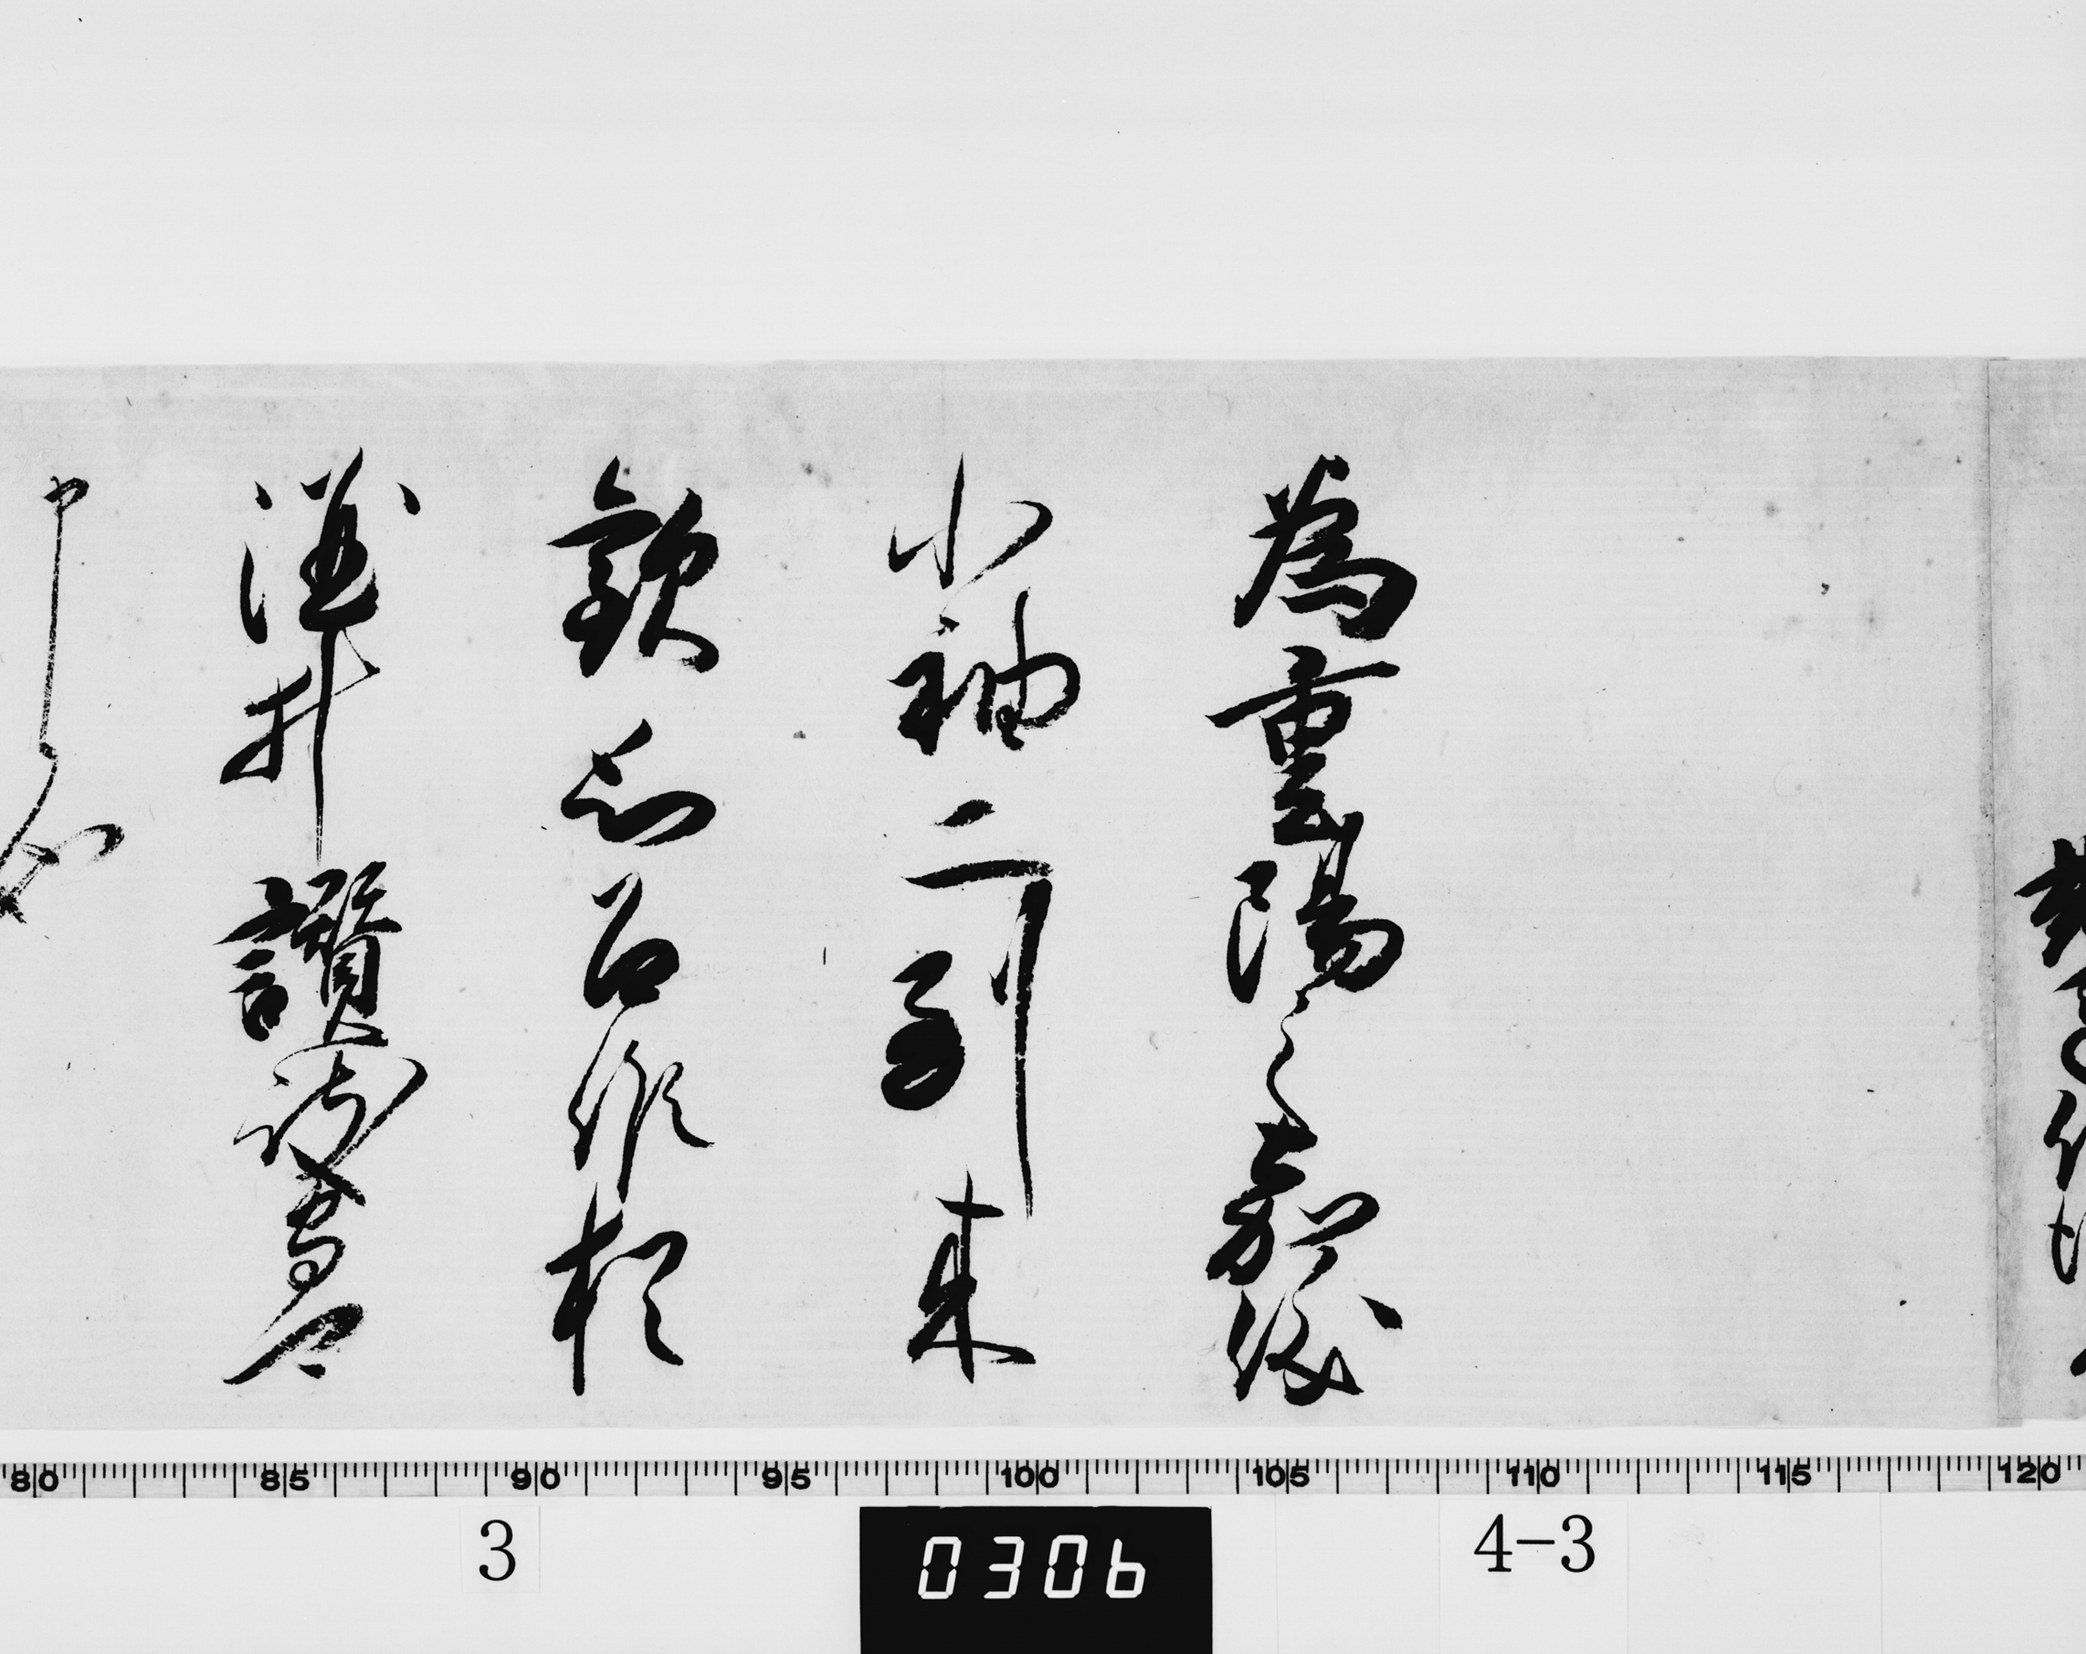 為重陽之嘉儀
小袖二到来
歓思召候猶
酒井讃岐守可
申候也
80 85 90 95 100 105 110 115 120
3
0306
4-3